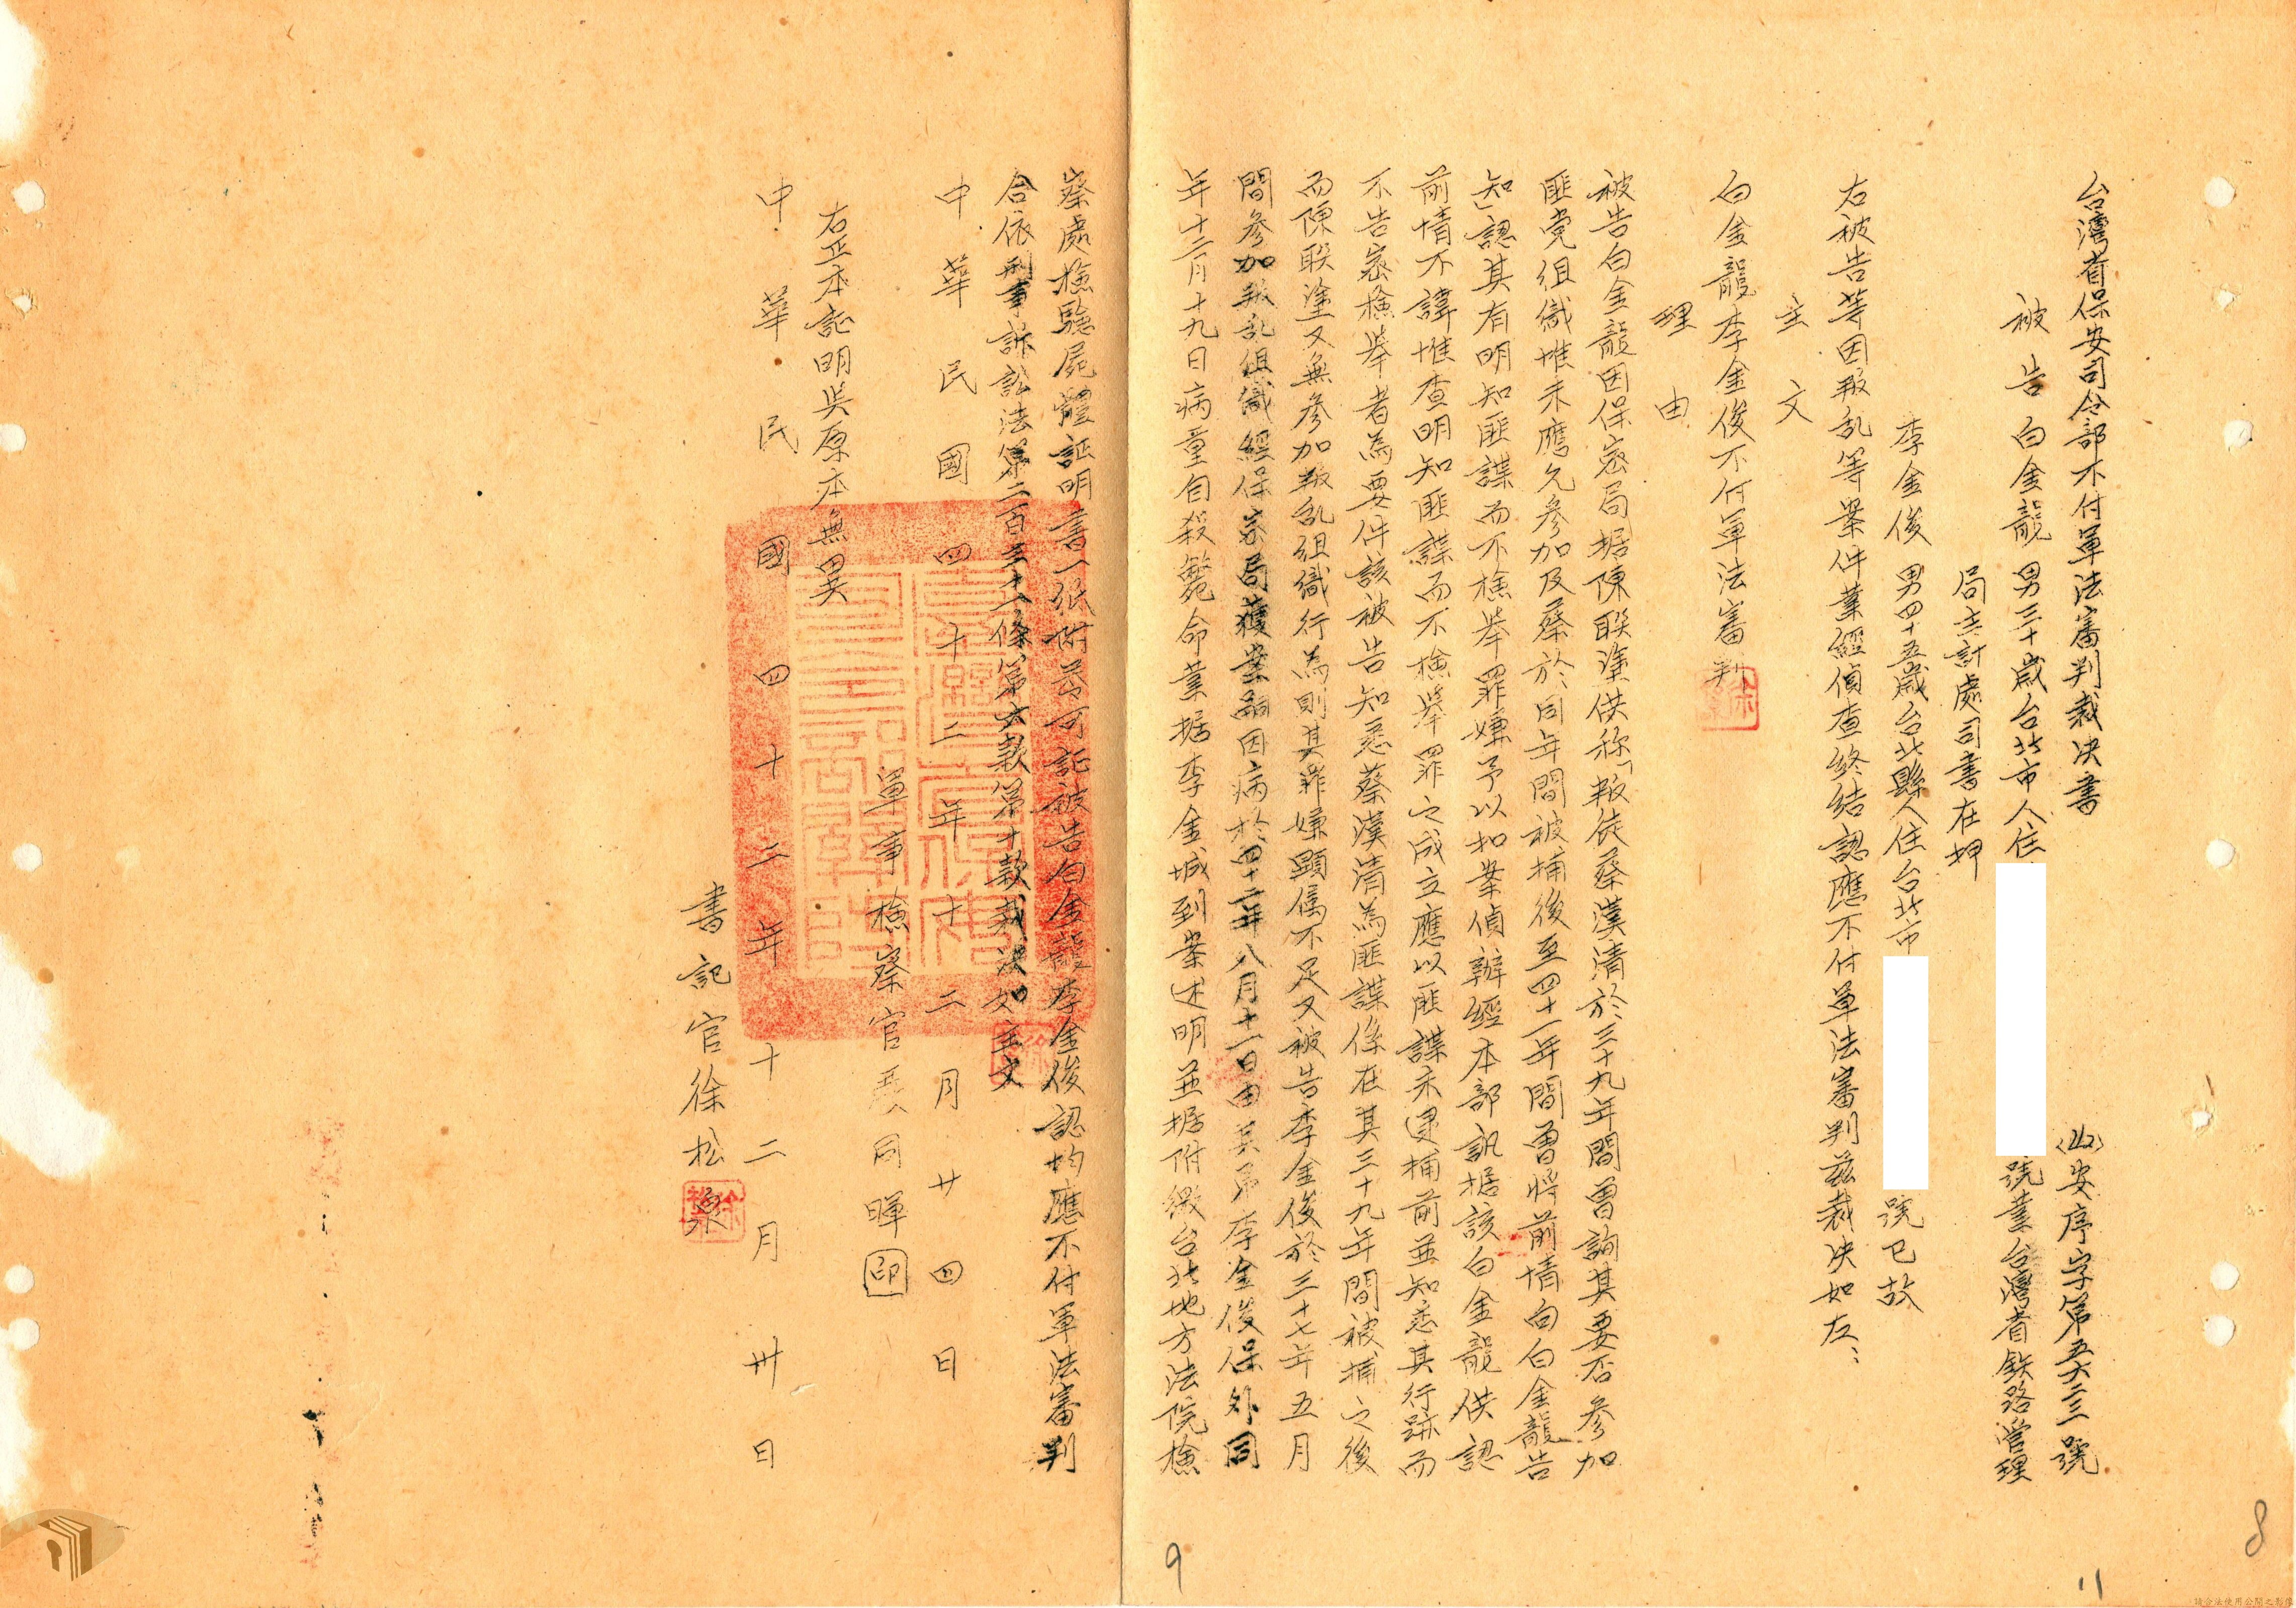 台灣省保安司令部不付軍法審判裁決書
(42)安序字第五六三三號
被告 白金龍 男三十歲台北市人住
號業台灣省鉄路管理
局主計處司書在押
李金俊 男四十五歲台北縣人住台北市
號已故
右被告等因叛乱等案件業經偵查終結認應不付軍法審判茲裁決如左：
主文
白金龍李金俊不付軍法審判
理由
被告白金龍因保密局据陳联塗供称「叛徒蔡漢清於三十九年間曾詢其要否參加
匪党組織惟未應允參加及蔡於同年間被捕後至四十一年間曾將前情向白金龍告
知」認其有明知匪諜而不檢举罪嫌予以扣案偵辦經本部訊据該白金龍供認
前情不諱惟查明知匪諜而不檢举罪之成立應以匪諜未逮捕前並知悉其行跡而
不告密檢举者為要件該被告知悉蔡漢清為匪諜係在其三十九年間被捕之後
而陳联塗又無參加叛乱組織行為則其罪嫌顕属不足又被告李金俊於三十七年五月
間參加叛乱組織經保密局獲案嗣因病於四十二年八月十一日由其弟李金俊保外同
年十二月十九日病重自殺斃命業据李金城到案述明並据附繳台北地方法院檢
察處檢驗屍體証明書一紙附卷可証被告白金龍李金俊認均應不付軍法審判
合依刑事訴訟法第二百三十一條第六款第十款裁決如主文
中華民國四十二年十二月廿四日
軍事檢察官 同暉 印
右正本証明與原本無異
中華民國四十二年十二月卅日
書記官徐松
8
9
11
請合法使用公開之影像